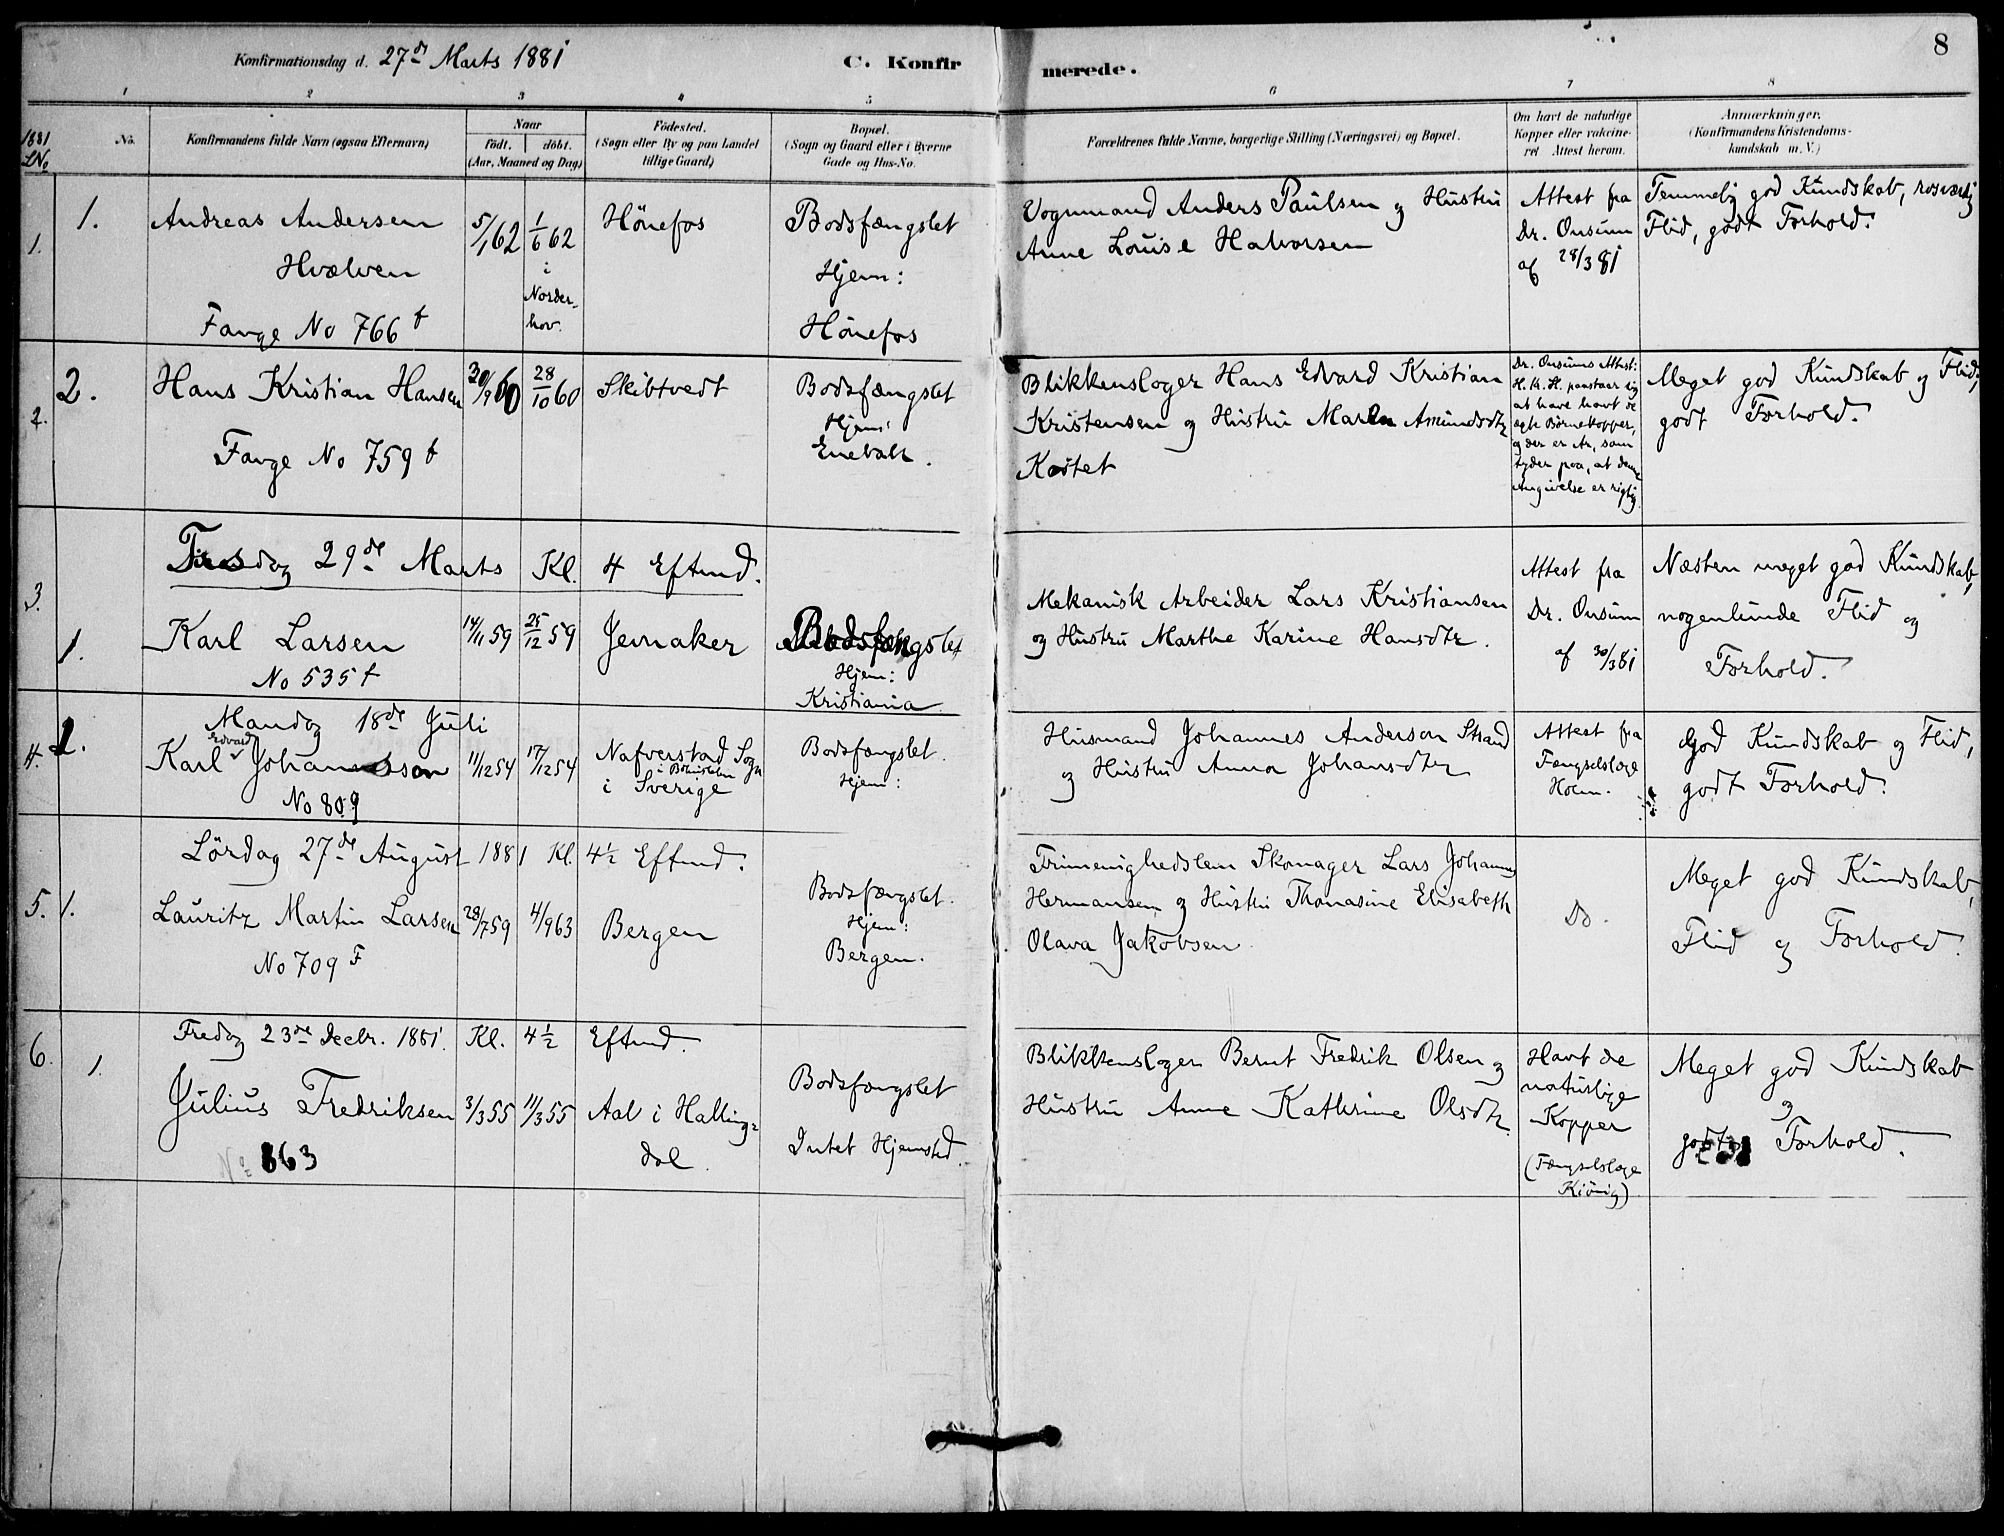 8
Konfirmationsdag d. 27de Marts 1881
C. Konfirmerede.
1 2 3 4 5 6 7 8
1881 LNo
No.
Konfirmandens fulde Navn (ogsaa Efternavn)
Naar
født. døbt.
(Aar, Maaned og Dag)
Födested.
(Sogn eller By og paa Landet
tillige Gaard)
Bopæl.
(Sogn og Gaard eller i Byerne
Gade og Hus-No.
Forældrenes fulde Navne, borgerlige Stilling (Næringsvei) og Bopæl.
Om havt de naturlige
Kopper eller vaccine-
ret Attest herom.
Anmærkninger.
(Konfirmandens Kristendoms-
kundskab m. V.)
1. 1.
Andreas Andersen
Hvælven
Fange No 766 f
5/1 62
1/6 62
i
Norder-
hov.
Hönefos
Bodsfængslet
Hjem:
Hönefos
Vognmand Anders Paulsen og Hustru
Anne Louise Halvorsen
Attest fra
Dr. Onsum
af 28/3 81
Temmelig god Kundskab, rosværdig
Flid, godt Forhold.
2. 2.
Hans Kristian Hansen
Fange No 759 f
30/9 60
28/10 60
Skibtvedt
Bodsfængslet
Hjem:
Enebakk.
Blikkensloger Hans Edvard Kristian
Kristensen og Hustru Maren Amundsdtr
Kastet
Dr. Onsums Attest:
H. K. H. paastaar sig
at have havt de
ægte Börnekopper,
og der er Ar, som
tyder paa, at denne
Angivelse er rigtig.
Meget god Kundskab og Flid,
godt Forhold.
3.
Tirsdag 29de Marts Kl. 4 Eftmd.
1.
Karl Larsen
No 535 f
14/11 59
25/12 59
Jevnaker
Bodsfængslet
Hjem:
Kristiania
Mekanisk Arbeider Lars Kristiansen
og Hustru Marthe Karine Hansdtr.
Attest fra
Dr. Onsum
af 30/3 81
Næsten meget god Kundskab,
nogenlunde Flid og
Forhold.
Mandag 18de Juli
4. 1.
Edvard
Karl Johansson
No 809
11/12 54
17/12 54
Nafverstad Sogn
i Bohuslehn
i Sverige
Bodsfængslet.
Hjem:
Husmand Johannes Anderson Strand
og Hustru Anna Johansdtr
Attest fra
Fængselslæge
Holm.
God Kundskab og Flid,
godt Forhold.
Lördag 27de August 1881 Kl. 4½ Eftmd.
5. 1.
Lauritz Martin Larsen
No 709 F
28/7 59
4/9 63
Bergen
Bodsfængslet.
Hjem:
Bergen.
Forimenighedslem Skomager Lars Johannes
Hermansen og Hustru Thomasine Elisabeth
Olava Jakobsen
Do.
Meget god Kundskab,
Flid og Forhold.
Fredag 23de Decbr. 1881. Kl. 4½ Eftmd.
6. 1.
Julius Fredriksen
No 863
3/3 55
11/3 55
Aal i Halling=
dal.
Bodsfængslet
Intet Hjemsted.
Blikkensloger Bernt Fredrik Olsen og
Hustru Anne Kathrine Olsdtr.
Havt de
naturlige
Kopper
(Fængselslæge
Kiönig)
Meget god Kundskab
og
godt Forhold.